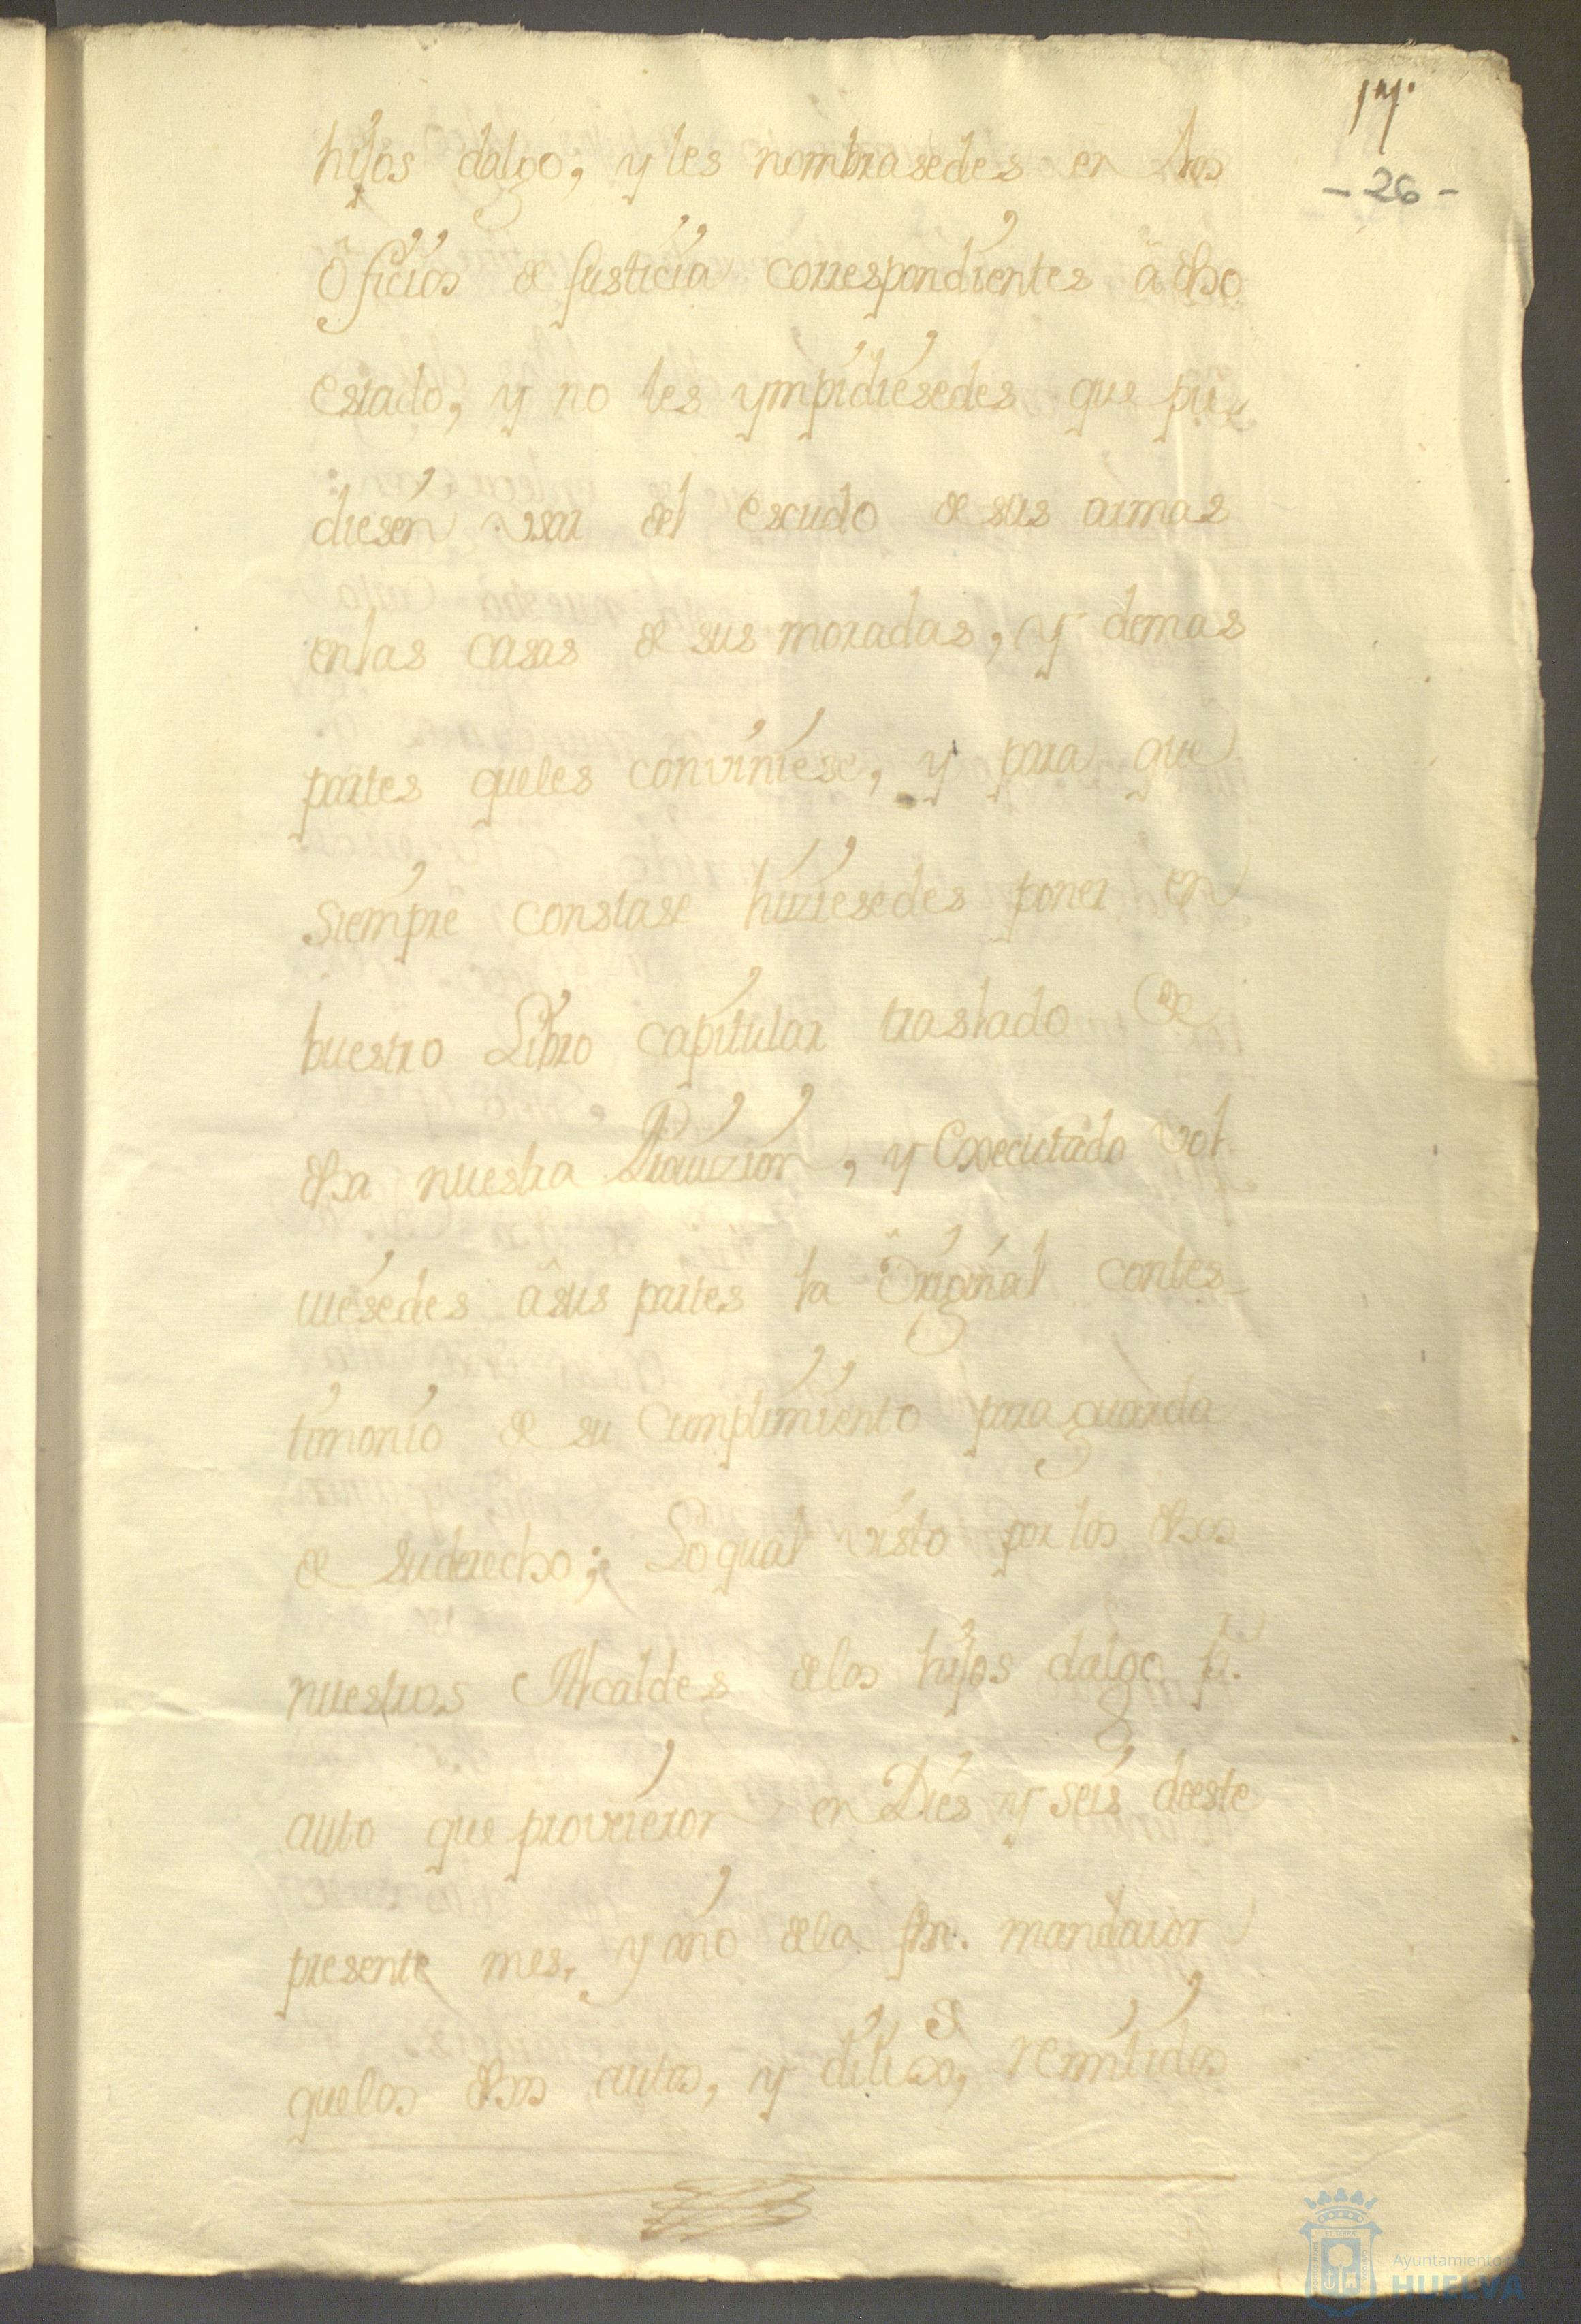 17.
- 26 -
hijos dalgo, y les nombrasedes en los
Ôficios de Justicia correspondientes â dho
estado, y no les ympidiesedes que pu
diesen vsar del escudo de sus armas
en las casas de sus moradas, y demas
partes queles conviniese, y para que
siempre constase hiziesedes poner en
buestro Libro capitular traslado de
dha nuestra Prouizion, y Executado vol
uiesedes âsus partes la Original contes-
timonio de su cumplimiento para guarda
de suderecho; Lo qual visto por los dhos
nuestros Alcaldes delos hijos dalgo pr.
auto que proveieron en Dies y seis deeste
presente mes, y año dela fha. mandaron
quelos dhos autos, y dilixs, remitidos
Ayuntamiento de
HUELVA